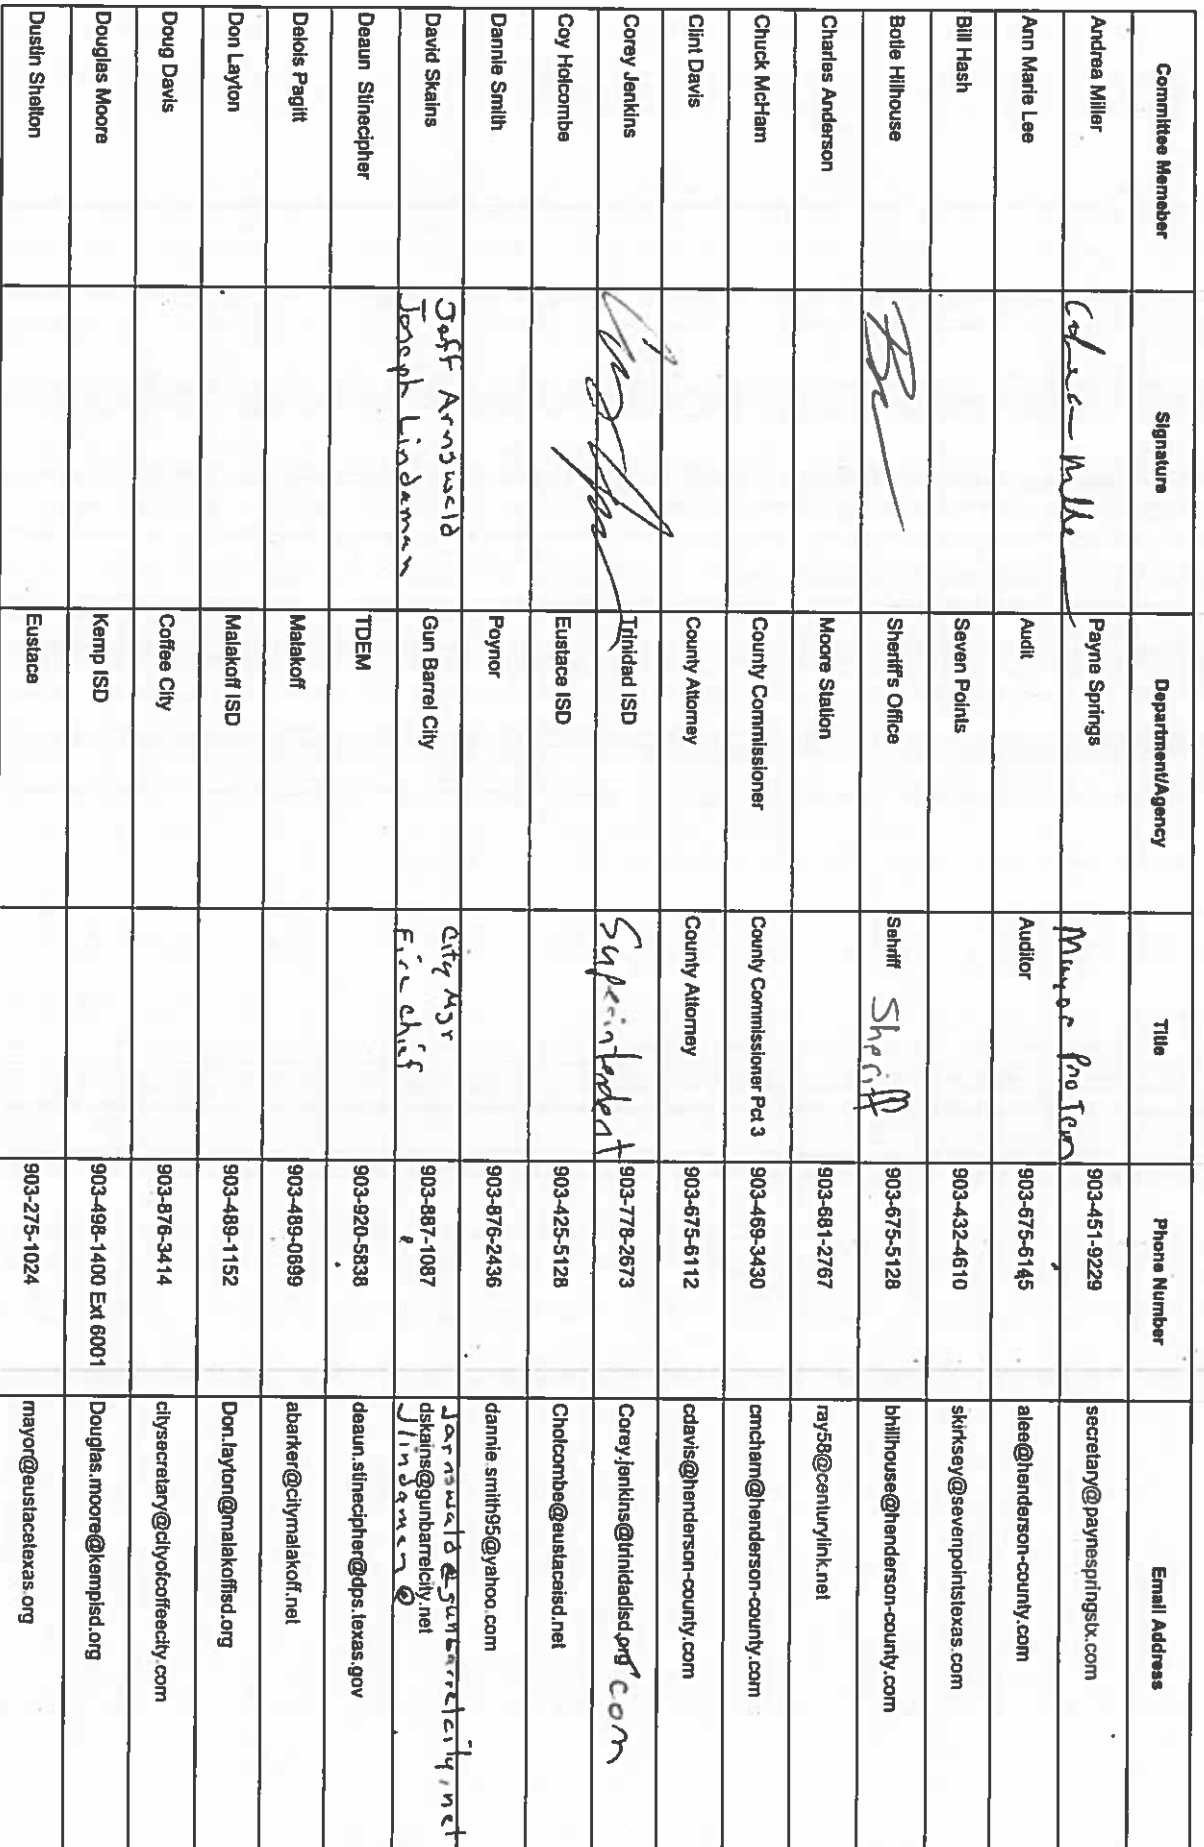 Committee Memeber Signature Department/Agency Title Phone Number Email Address
Andrea Miller Payne Springs Mayor Pro Tem 903-451-9229 secretary@paynespringstx.com
Ann Marie Lee Audit Auditor 903-675-6145 alee@henderson-county.com
Bill Hash Seven Points 903-432-4610 skirksey@sevenpointstexas.com
Botie Hilhouse Sheriff's Office Sehriff Sheriff 903-675-5128 bhillhouse@henderson-county.com
Charles Anderson Moore Station 903-681-2767 ray58@centurylink.net
Chuck McHam County Commissioner County Commissioner Pct 3 903-469-3430 cmcham@henderson-county.com
Clint Davis County Attorney County Attorney 903-675-6112 cdavis@henderson-county.com
Corey Jenkins Trinidad ISD Superintendent 903-778-2673 Corey.jenkins@trinidadisd.org com
Coy Holcombe Eustace ISD 903-425-5128 Cholcombe@eustaceisd.net
Dannie Smith Poynor 903-876-2436 dannie.smith95@yahoo.com
Jeff Arnswald City Mgr Jarnswald@gunbarrelcity.net
David Skains Gun Barrel City 903-887-1087 dskains@gunbarrelcity.net
Joseph Lindaman Fire Chief Jlindaman@
Deaun Stinecipher TDEM 903-920-5838 deaun.stinecipher@dps.texas.gov
Delois Pagitt Malakoff 903-489-0699 abarker@citymalakoff.net
Don Layton Malakoff ISD 903-489-1152 Don.layton@malakoffisd.org
Doug Davis Coffee City 903-876-3414 citysecretary@cityofcoffeecity.com
Douglas Moore Kemp ISD 903-498-1400 Ext 6001 Douglas.moore@kempisd.org
Dustin Shelton Eustace 903-275-1024 mayor@eustacetexas.org